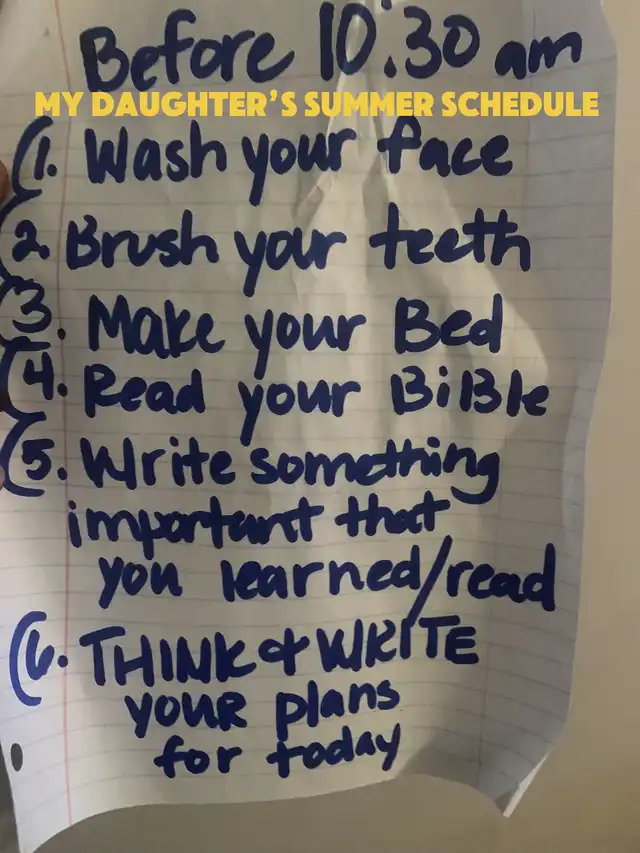 Before 10:30 am
MY DAUGHTER'S SUMMER SCHEDULE
1. Wash your face
2. Brush your teeth
3. Make your Bed
4. Read your BiBle
5. Write something
important that
you learned/read
6. THINK & WRITE
YOUR plans
for today